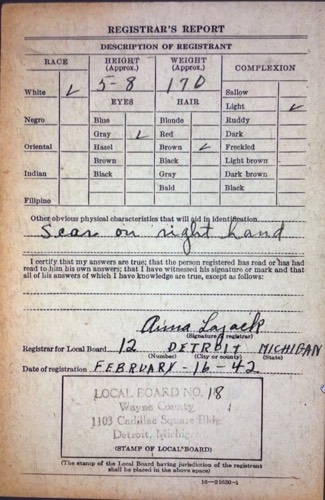 REGISTRAR'S REPORT
DESCRIPTION OF REGISTRANT
RACE HEIGHT (Approx.) WEIGHT (Approx.) COMPLEXION
5-8 170
White ✓ EYES HAIR Sallow
Light ✓
Negro Blue Blonde Ruddy
Gray ✓ Red Dark
Oriental Hazel Brown ✓ Freckled
Brown Black Light brown
Indian Black Gray Dark brown
Bald Black
Filipino
Other obvious physical characteristics that will aid in identification
Scar on right hand
I certify that my answers are true; that the person registered has read or has had
read to him his own answers; that I have witnessed his signature or mark and that
all of his answers of which I have knowledge are true, except as follows:
Anna Lajack
(Signature of registrar)
Registrar for Local Board 12 DETROIT MICHIGAN
(Number) (City or county) (State)
Date of registration FEBRUARY-16-42
LOCAL BOARD NO. 18
Wayne County
1103 Cadillac Square Bldg.
Detroit, Michigan
(STAMP OF LOCAL BOARD)
(The stamp of the Local Board having jurisdiction of the registrant
shall be placed in the above space)
16—21630-1